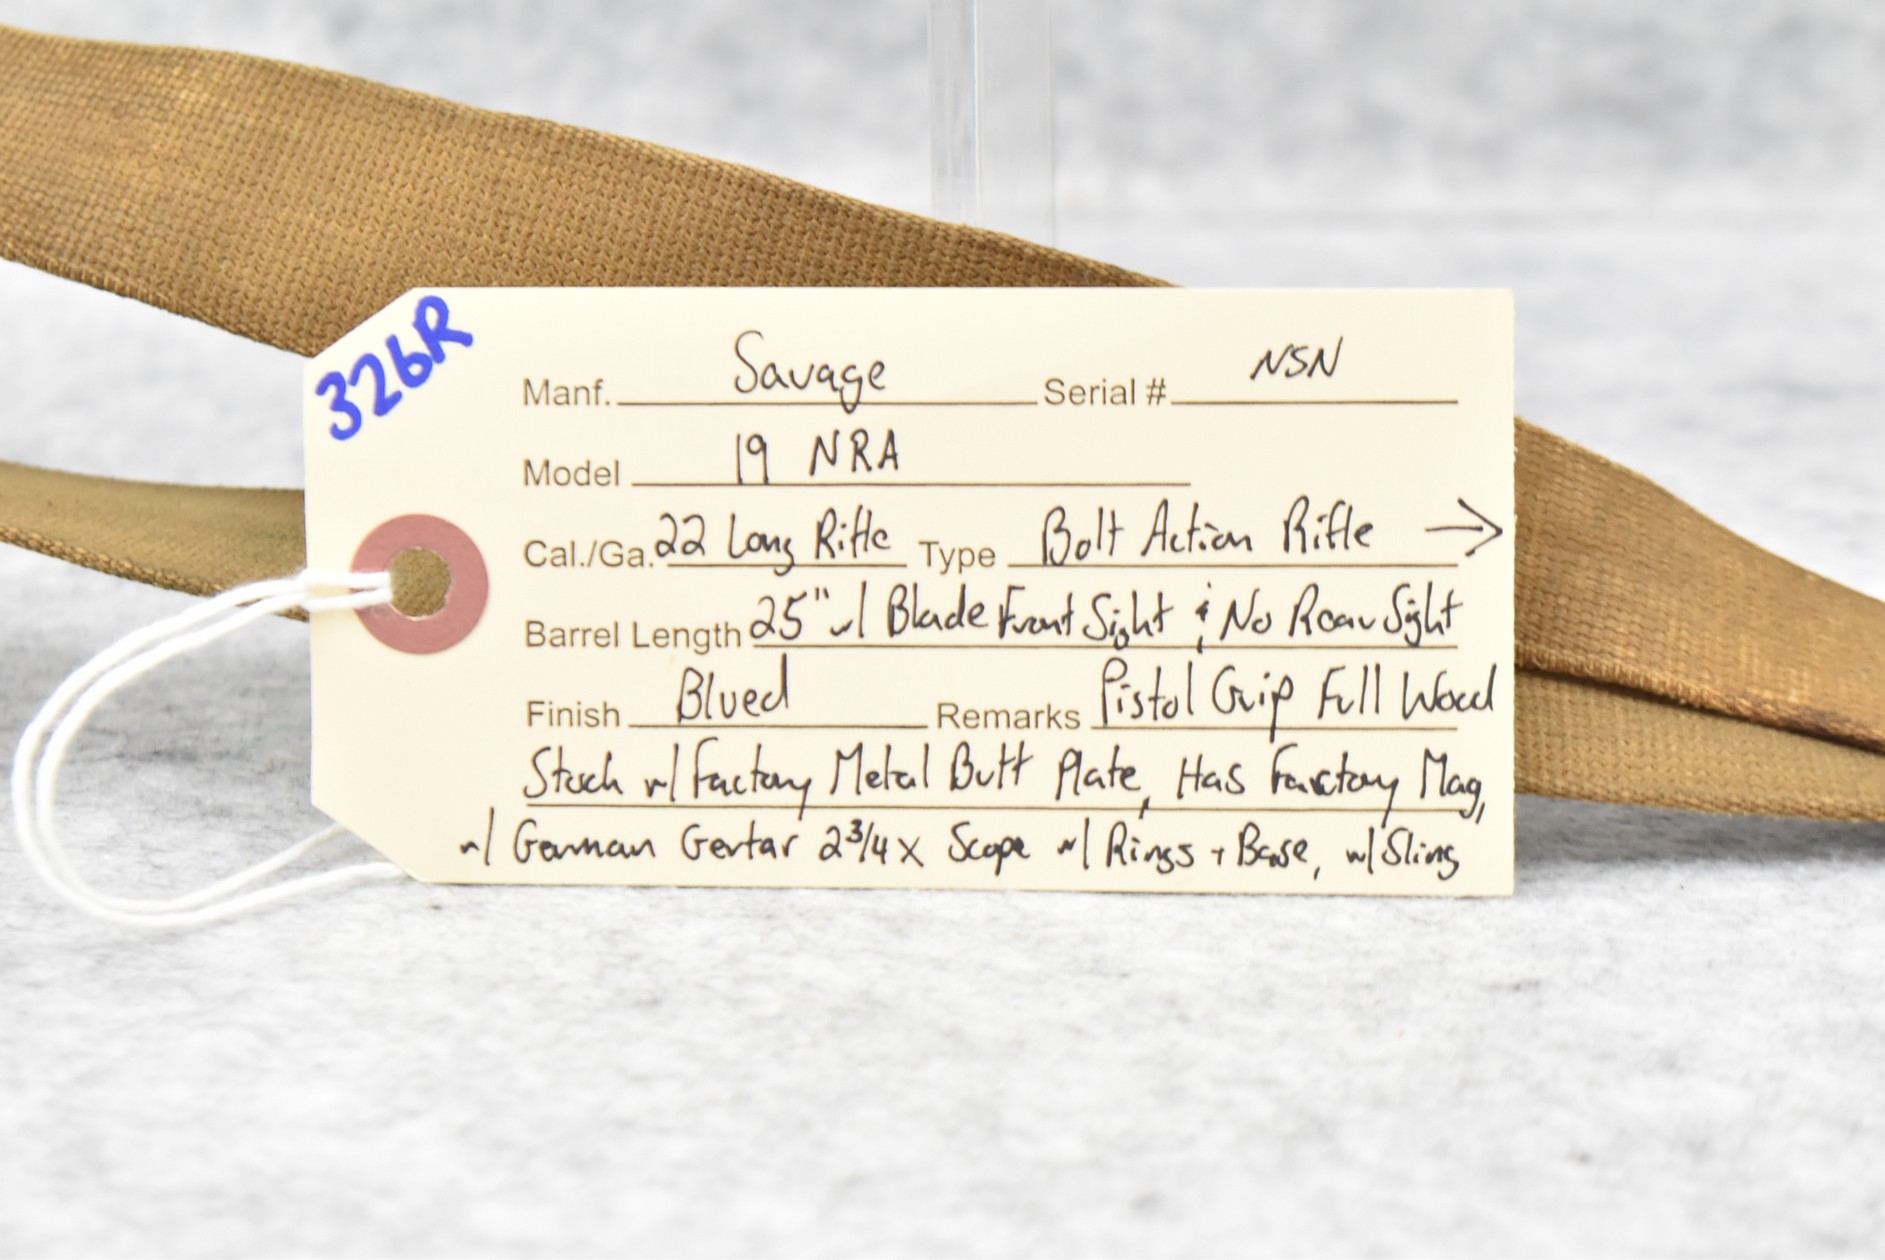 326R
Manf. Savage Serial # NSN
Model 19 NRA
Cal./Ga. 22 Long Rifle Type Bolt Action Rifle →
Barrel Length 25" w/ Blade Front Sight & No Rear Sight
Finish Blued Remarks Pistol Grip Full Wood
Stock w/ Factory Metal Butt Plate, Has Factory Mag,
w/ German Gertar 2 3/4 x Scope w/ Rings + Base, w/ Sling